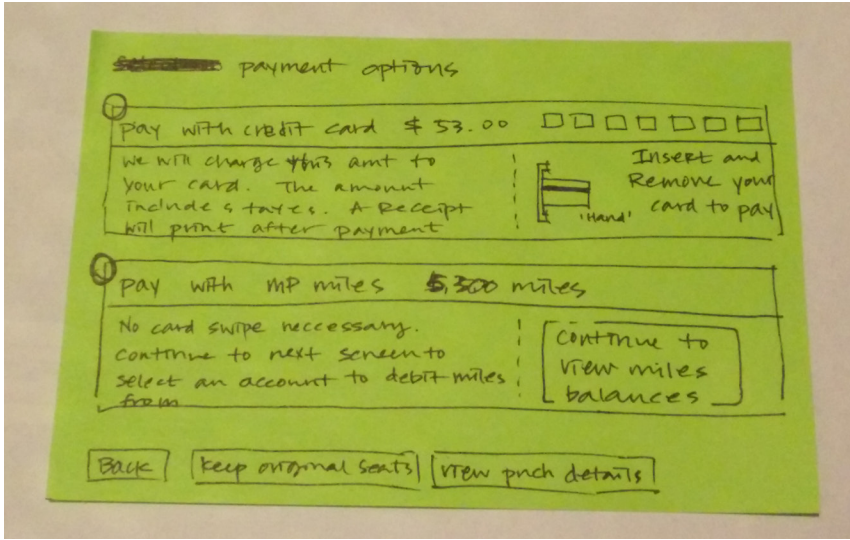 payment options
pay with credit card $ 53.00
we will charge this amt to
your card. The amount
includes taxes. A Receipt
will print after payment
Insert and
Remove your
card to pay
'Hand'
pay with MP miles 5,300 miles
No card swipe neccessary.
continue to next screen to
select an account to debit miles
from
continue to
view miles
balances
Back
keep original seats
view prch details